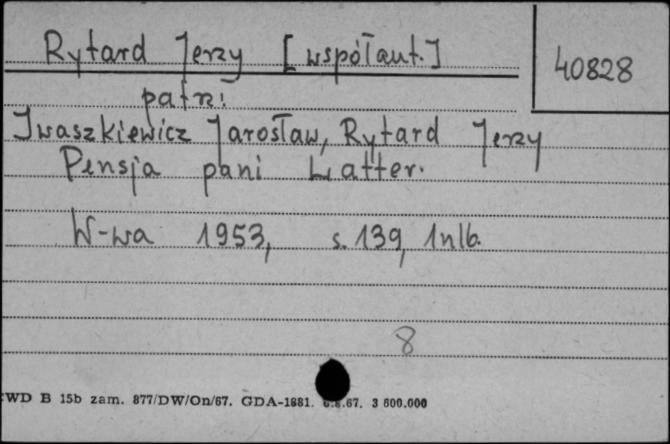 Rytard Jerzy [współaut.]
40828
patrz:
Iwaszkiewicz Jarosław, Rytard Jerzy
Pensja pani Latter.
W-wa 1953, s. 139, 1nlb.
8
WD B 15b zam. 877/DW/On/67. GDA-1881. .67. 3 600.000